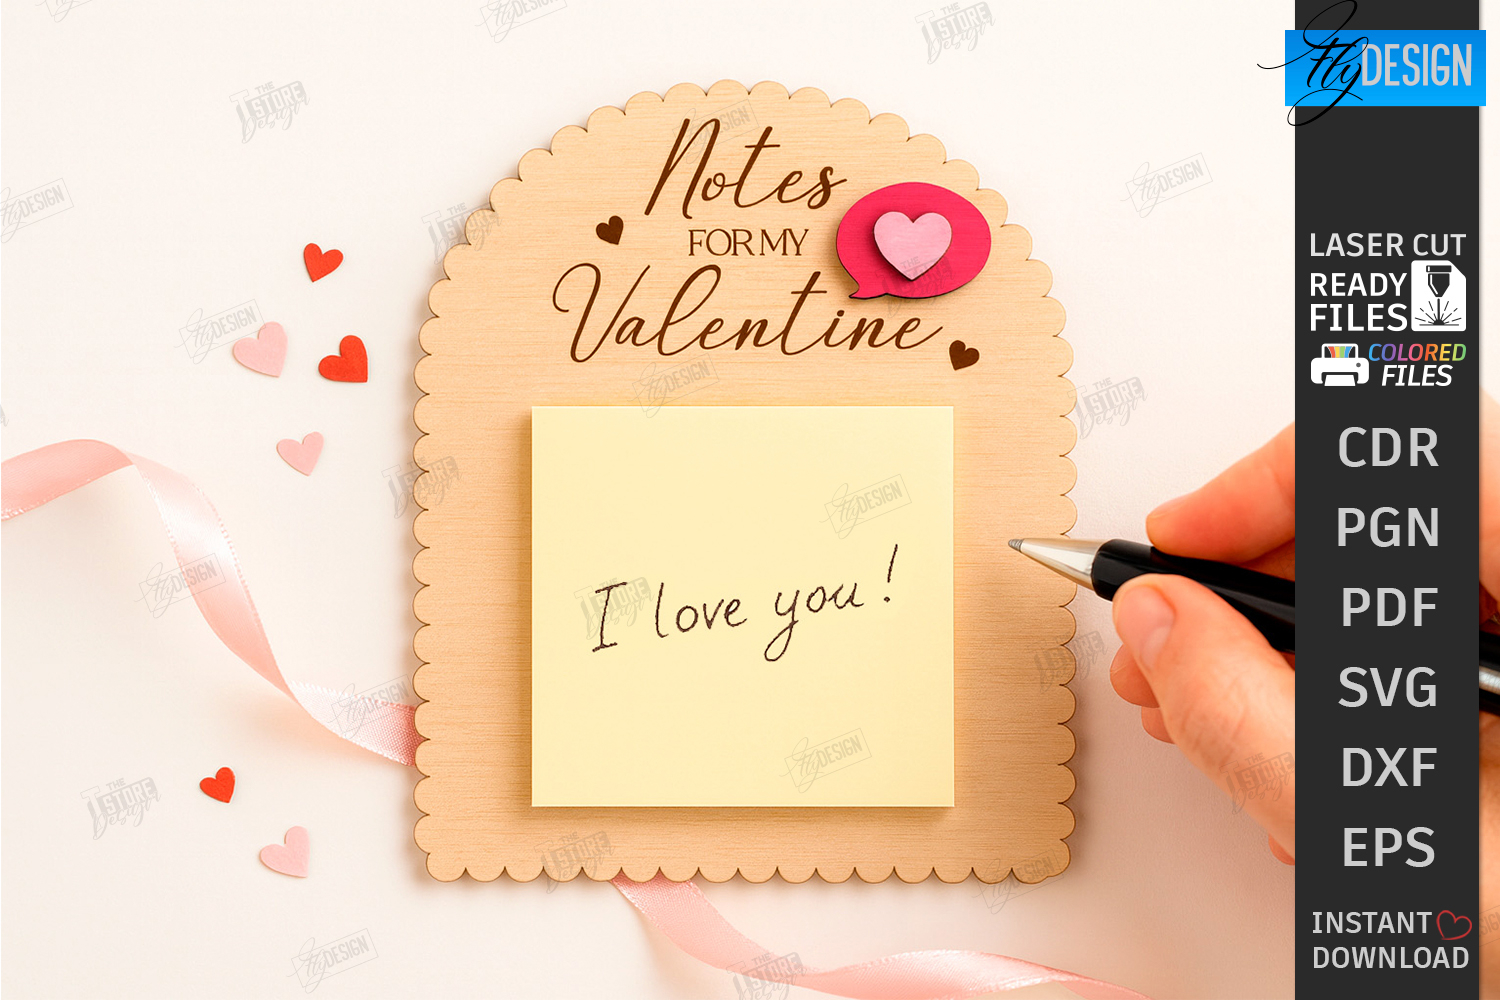 Notes
FOR MY
Valentine
I love you!
FlyDESIGN
LASER CUT
READY
FILES
COLORED
FILES
CDR
PGN
PDF
SVG
DXF
EPS
INSTANT
DOWNLOAD
THE
STORE
Design
FlyDESIGN